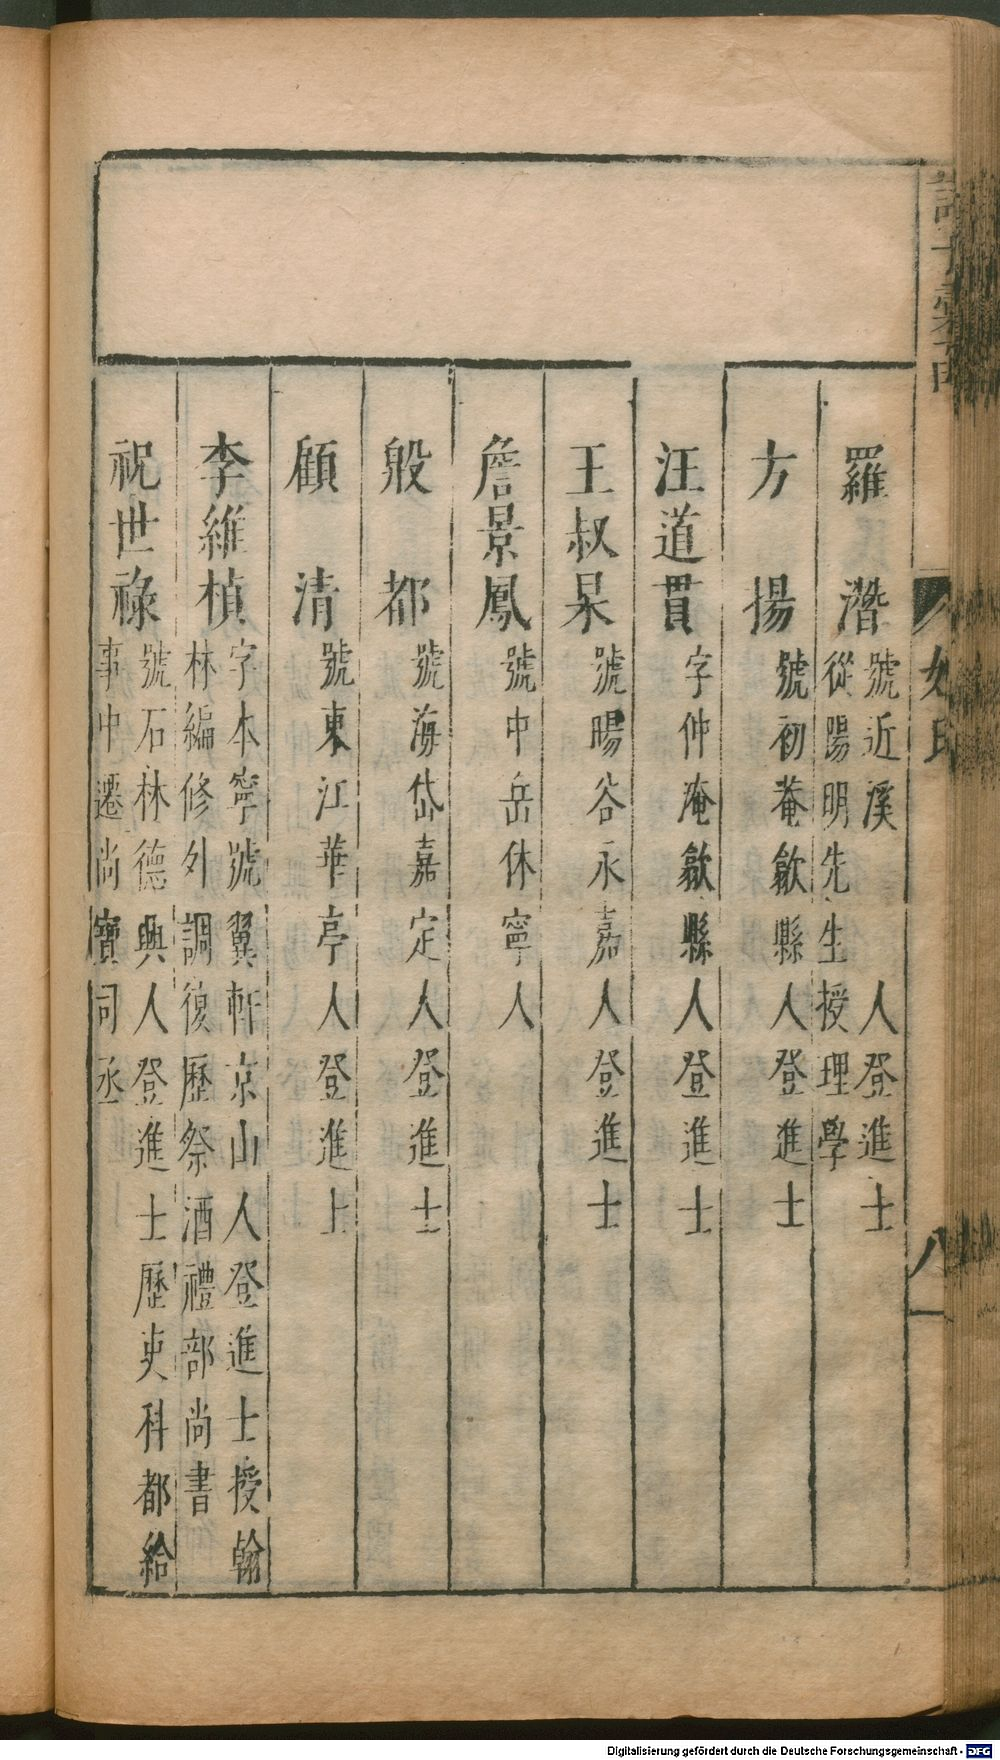 羅　潛 號近溪　　人登進士
從陽明先生授理學
方　揚 號初菴歙縣人登進士
汪道貫 字仲淹歙縣人登進士
王叔杲 號暘谷永嘉人登進士
詹景鳳 號中岳休寧人
殷　都 號海岱嘉定人登進士
顧　清 號東江華亭人登進士
李維楨 字本寧號翼軒京山人登進士授翰
林編修外調復歷祭酒禮部尚書
祝世祿 號石林德興人登進士歷吏科都給
事中遷尚寶司丞
八
Digitalisierung gefördert durch die Deutsche Forschungsgemeinschaft - DFG